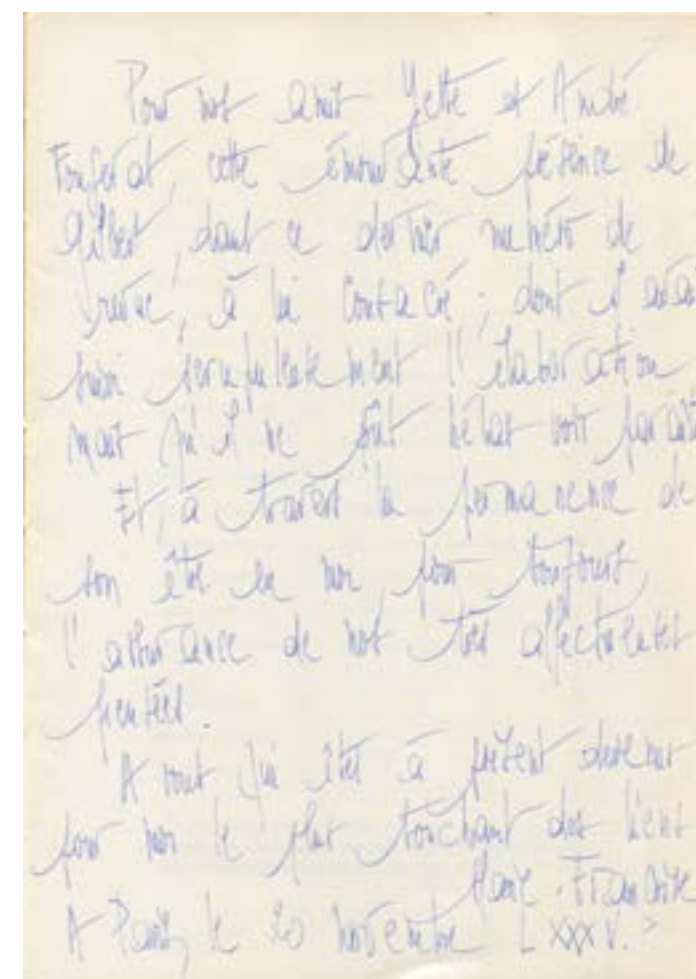 Pour nos amis Yette et André
Fougerat, cette émouvante présence de
Gilbert, dans ce dernier numéro de
revue, à lui consacré ; dont il avai
suivi scrupuleusement l'élaboration
mais qu'il ne pût hélas voir paraît
Et, à travers la permanence de
son être en moi pour toujours,
l'assurance de nos très affectueuses
pensées.
A vous qui êtes à présent devenus
pour moi le plus touchant des liens
Marie-Françoise
A Paris, le 20 novembre LXXXV.